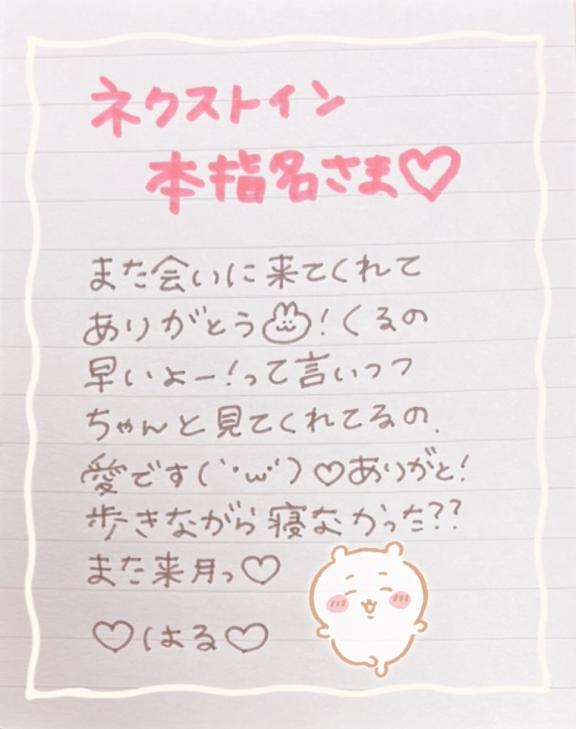 ネクストイン
本指名さま♡
また会いに来てくれて
ありがとう！くるの
早いよー！って言いつつ
ちゃんと見てくれてるの.
愛です(´･ω･`)♡ありがと！
歩きながら寝なかった??
また来月っ♡
♡はる♡